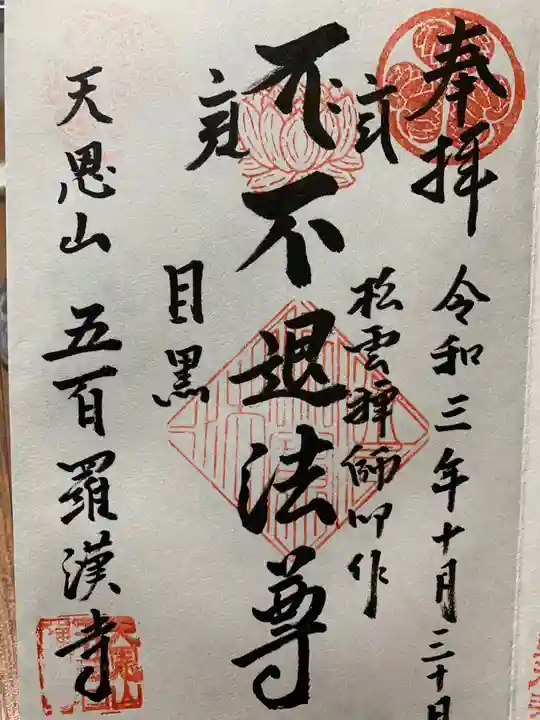 奉拝
令和三年十月三十日
松雲禅師御作
不退法尊
目黒
天恩山 五百羅漢寺
天恩山